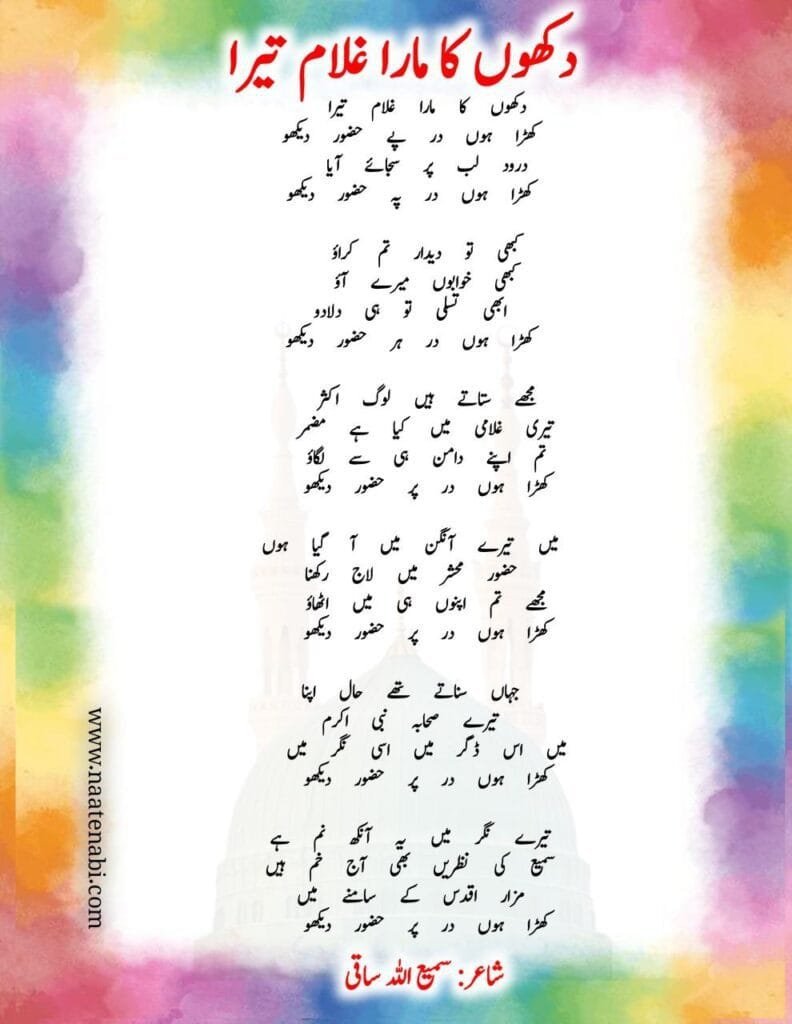 دکھوں کا مارا غلام تیرا
دکھوں کا مارا غلام تیرا
کھڑا ہوں در پے حضور دیکھو
درود لب پر سجائے آیا
کھڑا ہوں در پہ حضور دیکھو
کبھی تو دیدار تم کراؤ
کبھی خوابوں میرے آؤ
ابھی تسلی تو ہی دلادو
کھڑا ہوں در ہر حضور دیکھو
مجھے ستاتے ہیں لوگ اکثر
تیری غلامی میں کیا ہے مضمر
تم اپنے دامن ہی سے لگاؤ
کھڑا ہوں در پر حضور دیکھو
میں تیرے آنگن میں آ گیا ہوں
حضور محشر میں لاج رکھنا
مجھے تم اپنوں ہی میں اٹھاؤ
کھڑا ہوں در پر حضور دیکھو
جہاں سناتے تھے حال اپنا
تیرے صحابہ نبی اکرم
میں اس ڈگر میں اسی نگر میں
کھڑا ہوں در پر حضور دیکھو
تیرے نگر میں یہ آنکھ نم ہے
سمیع کی نظریں بھی آج خم ہیں
مزار اقدس کے سامنے میں
کھڑا ہوں در پر حضور دیکھو
شاعر: سمیع اللہ ساقی
www.naatenabi.com